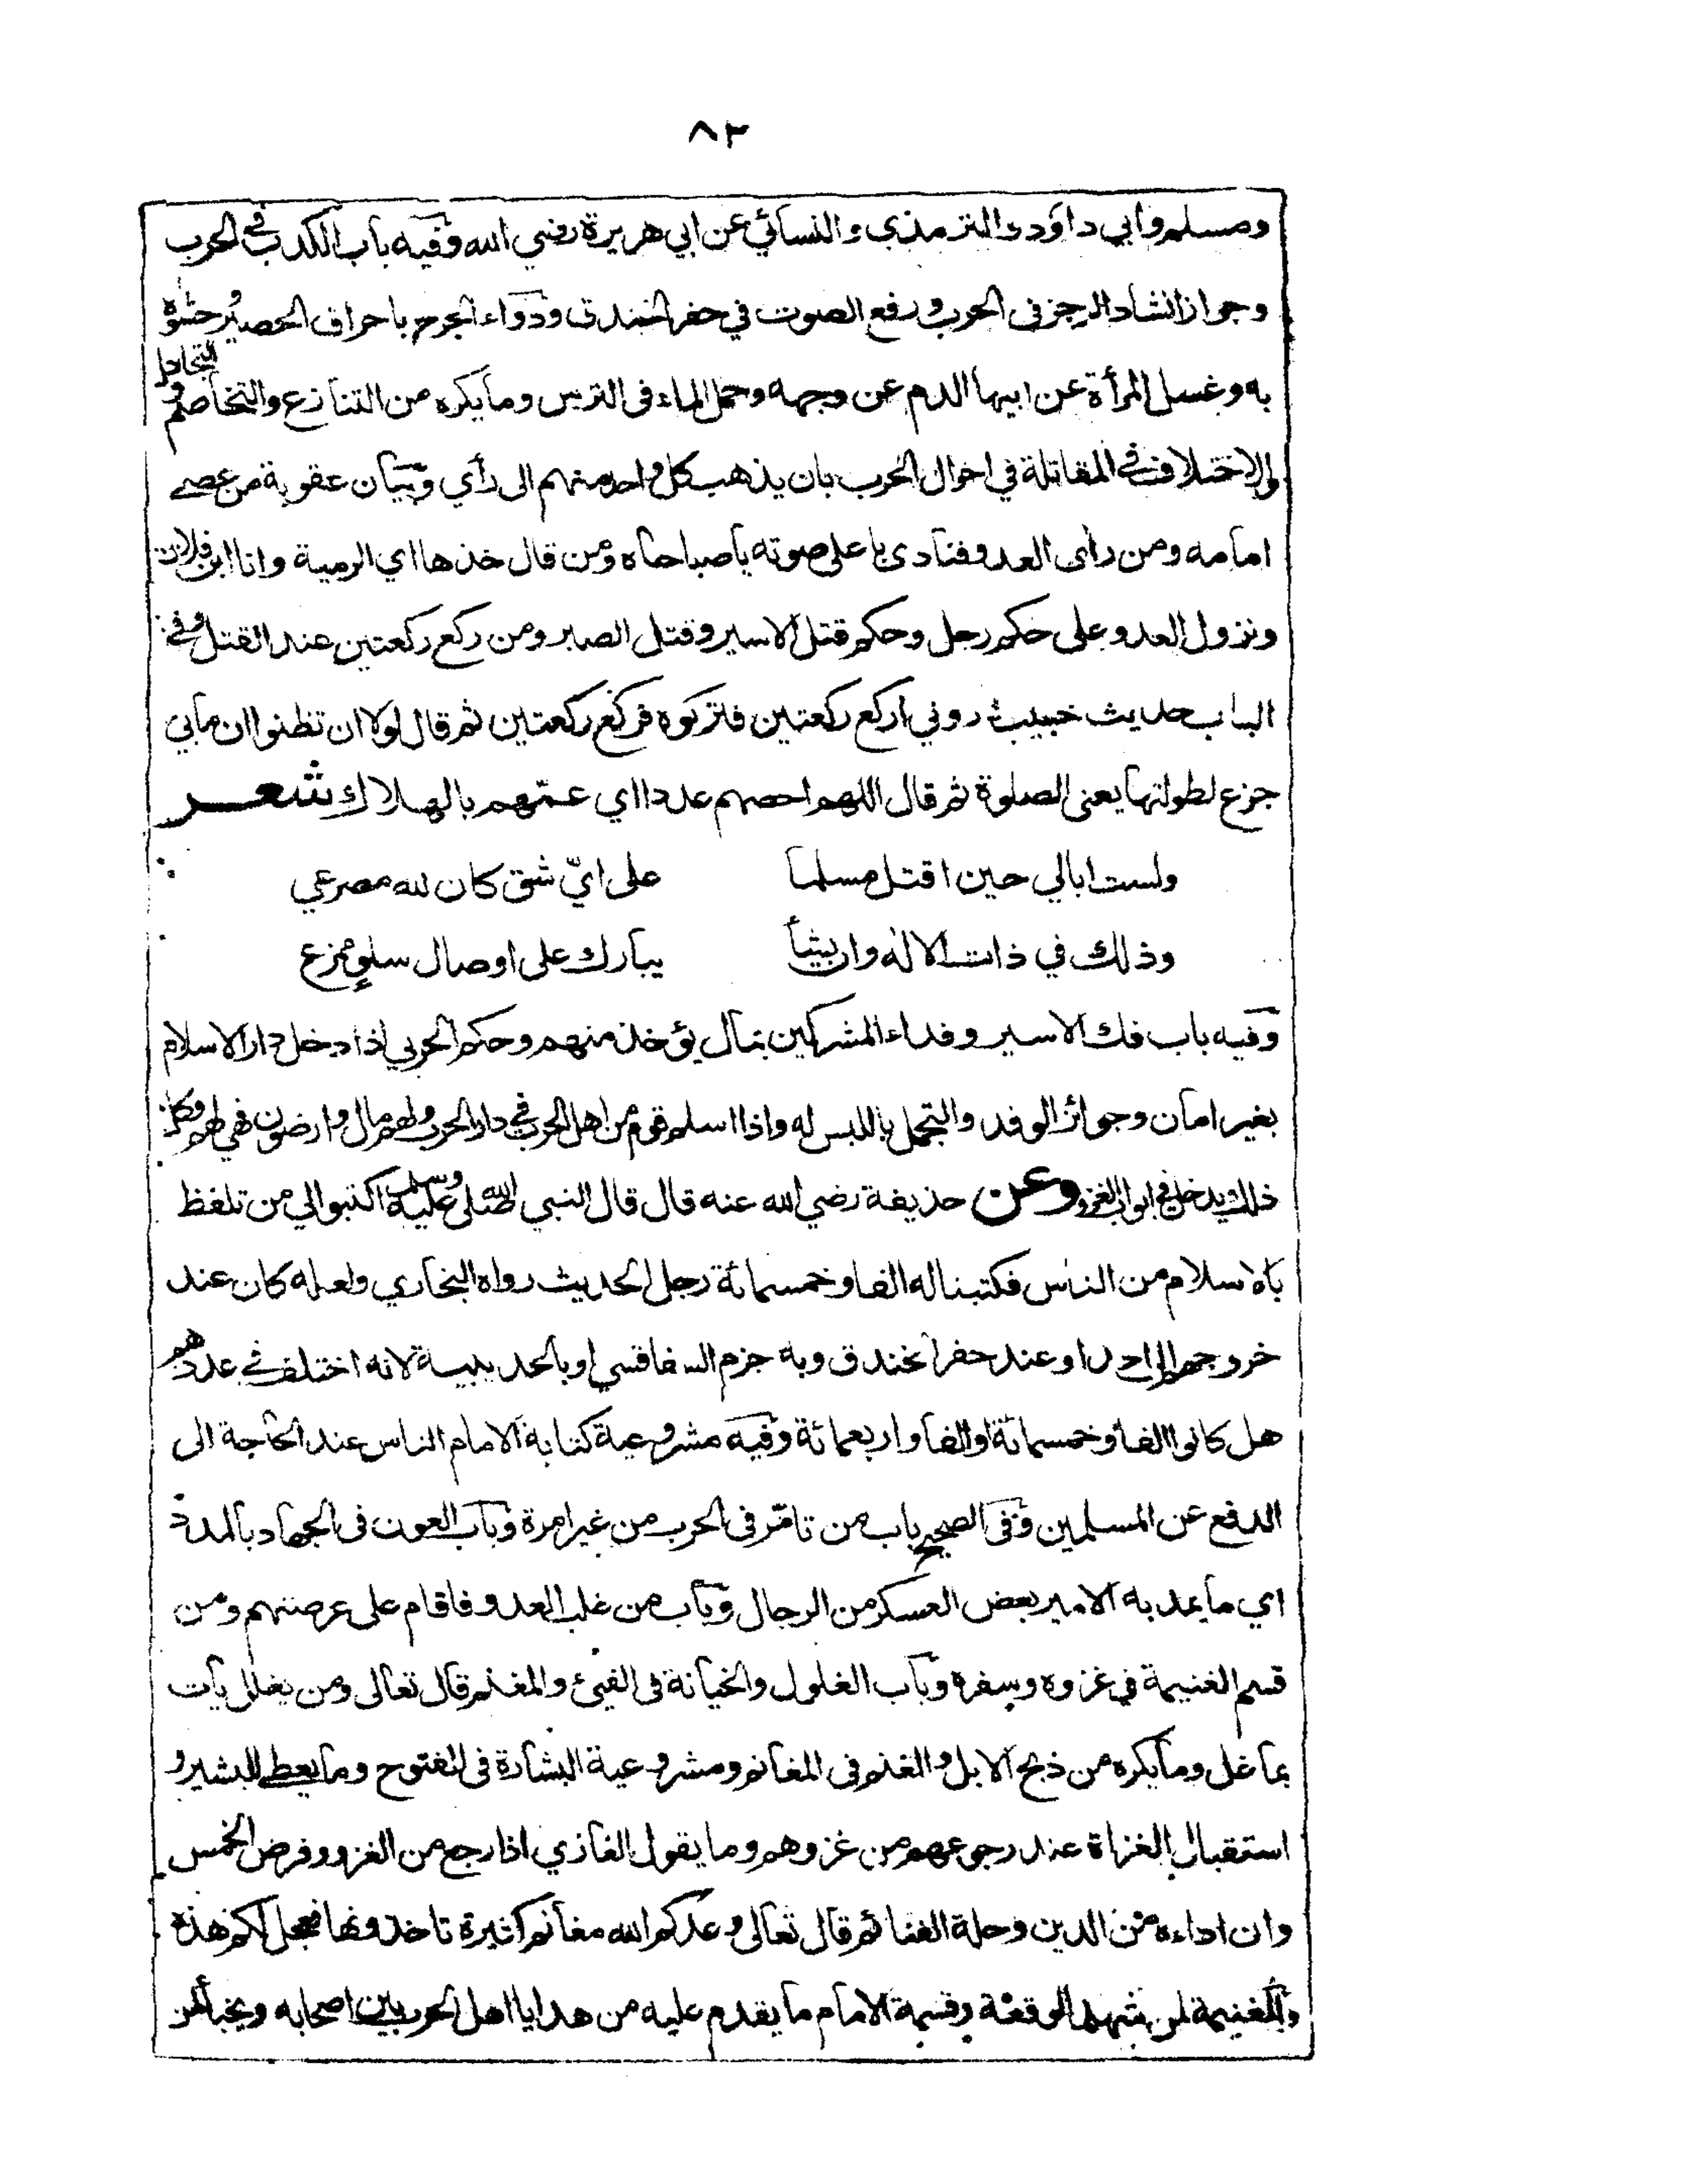 ٨٢
ومسلم وابي داود والترمذي والنسائي عن ابي هريرة رضي الله وفيه باب الكذب في الحرب
وجواز انشاد الرجز في الحرب ورفع الصوت في حفر الخندق ودواء الجرح باحراق الحصير وحشوه
به وغسل المرأة عن ابيها الدم عن وجهه وحمل الماء في الترس وما يكره من التنازع والتخاصم والتجادل
والاختلاف في المقاتلة في احوال الحرب بان يذهب كل واحد منهم الى رأي وبيان عقوبة من عصى
امامه ومن رأى العدو فنادى باعلى صوته يا صباحاه ومن قال خذها اي الرمية وانا ابن فلان
ونزول العدو على حكم رجل وحكم قتل الاسير وقتل الصبر ومن ركع ركعتين عند القتل وفي
الباب حديث خبيب ذروني اركع ركعتين فتركوه فركع ركعتين ثم قال لولا ان تظنوا ان ما بي
جزع لطولتها يعني الصلوة ثم قال اللهم احصهم عددا اي عمّهم بالهلاك شعر
ولست ابالي حين اقتل مسلما على ايّ شق كان لله مصرعي
وذلك في ذات الاله وان يشأ يبارك على اوصال سلو ممزع
وفيه باب فك الاسير وفداء المشركين بمال يؤخذ منهم وحكم الحربي اذا دخل دار الاسلام
بغير امان وجوائز الوفد والتجمل باللبس له واذا اسلم قوم من اهل الحرب في دار الحرب ولهم مال وارضون فهي لهم وكل
ذلك يدخل في ابواب الغزو وعن حذيفة رضي الله عنه قال قال النبي صلى الله عليه وسلم اكتبوا لي من تلفظ
بالاسلام من الناس فكتبنا له الفا وخمسمائة رجل الحديث رواه البخاري ولعله كان عند
خروجهم الى احد او عند حفر الخندق وبه جزم السفاقسي او بالحديبية لانه اختلف في عددهم
هل كانوا الفا وخمسمائة او الفا واربعمائة وفيه مشروعية كتابة الامام الناس عند الحاجة الى
الدفع عن المسلمين وفي الصحيح باب من تامّر في الحرب من غير امرة وباب العون في الجهاد بالمدد
اي ما يمد به الامير بعض العسكر من الرجال وباب من غلب العدو فاقام على عرصتهم ومن
قسم الغنيمة في غزوه وسفره وباب الغلول والخيانة في الفيئ والمغنم قال تعالى ومن يغلل يأت
بما غل وما يكره من ذبح الابل والغنم في المغانم ومشروعية البشارة في الفتوح وما يعطى للبشير و
استقبال الغزاة عند رجوعهم من غزوهم وما يقول الغازي اذا رجع من الغزو وفرض الخمس
وان اداءه من الدين وحلة الغنائم قال تعالى وعدكم الله مغانم كثيرة تاخذونها فعجل لكم هذه
والغنيمة لمن شهد الوقعة وقسمة الامام ما يقدم عليه من هدايا اهل الحرب بين اصحابه ويخبأ لمن